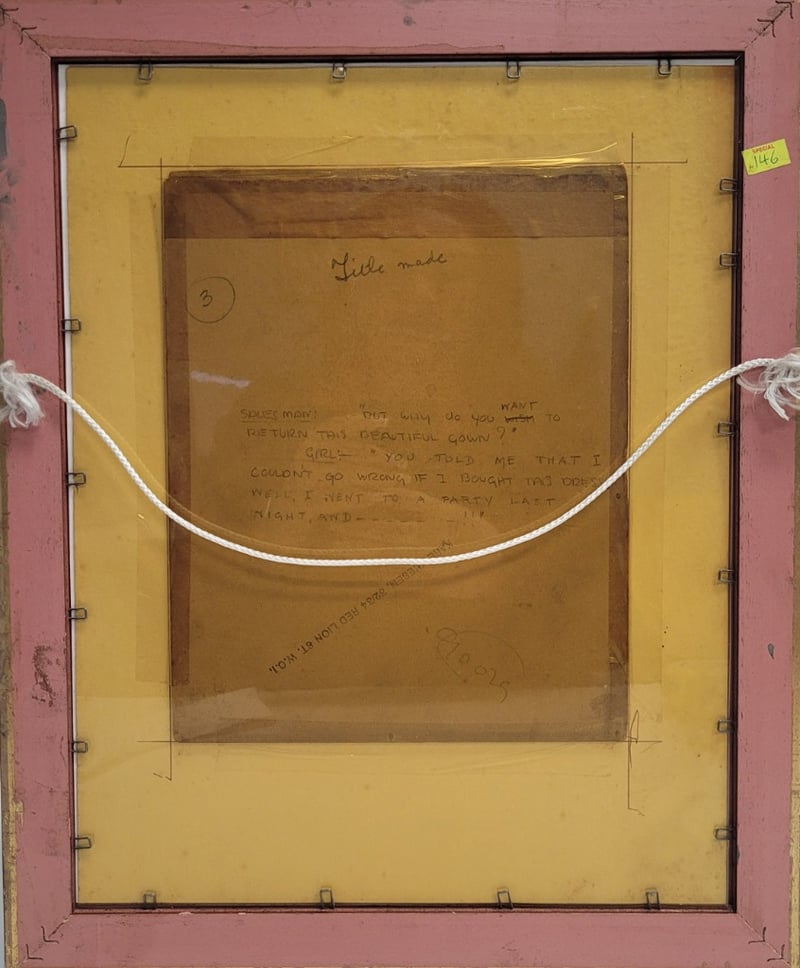 SPECIAL
146
Title made
3
WANT
SALESMAN: "BUT WHY DO YOU WISH TO
RETURN THIS BEAUTIFUL GOWN?"
GIRL:- "YOU TOLD ME THAT I
COULDN'T GO WRONG IF I BOUGHT THIS DRESS
WELL, I WENT TO A PARTY LAST
NIGHT, AND - - - - - - !!!"
32/34 RED LION ST. W.C.1.